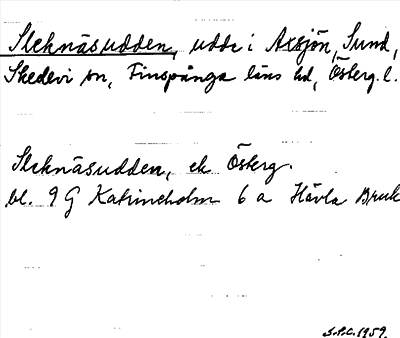 Sleknäsudden, udde i Axsjön, Sund,
Skedevi sn, Finspånga läns hd, Österg. l.
Sleknäsudden, ek Österg.
bl. 9 G Katrineholm 6 a Hävla Bruk
S.P.C. 1959.